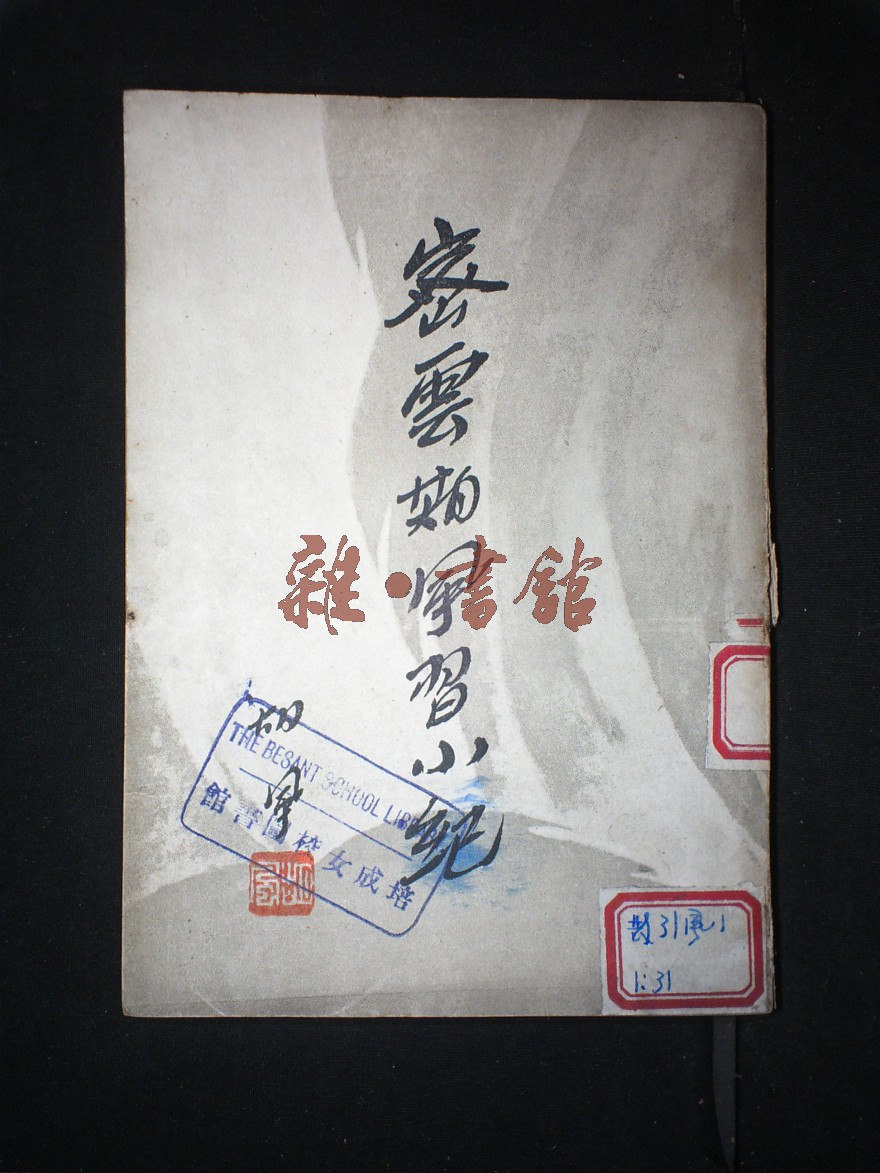 密雲期風習小紀
雜·書館
胡風
THE BESANT SCHOOL LIBRARY
培成女校圖書館
1:31